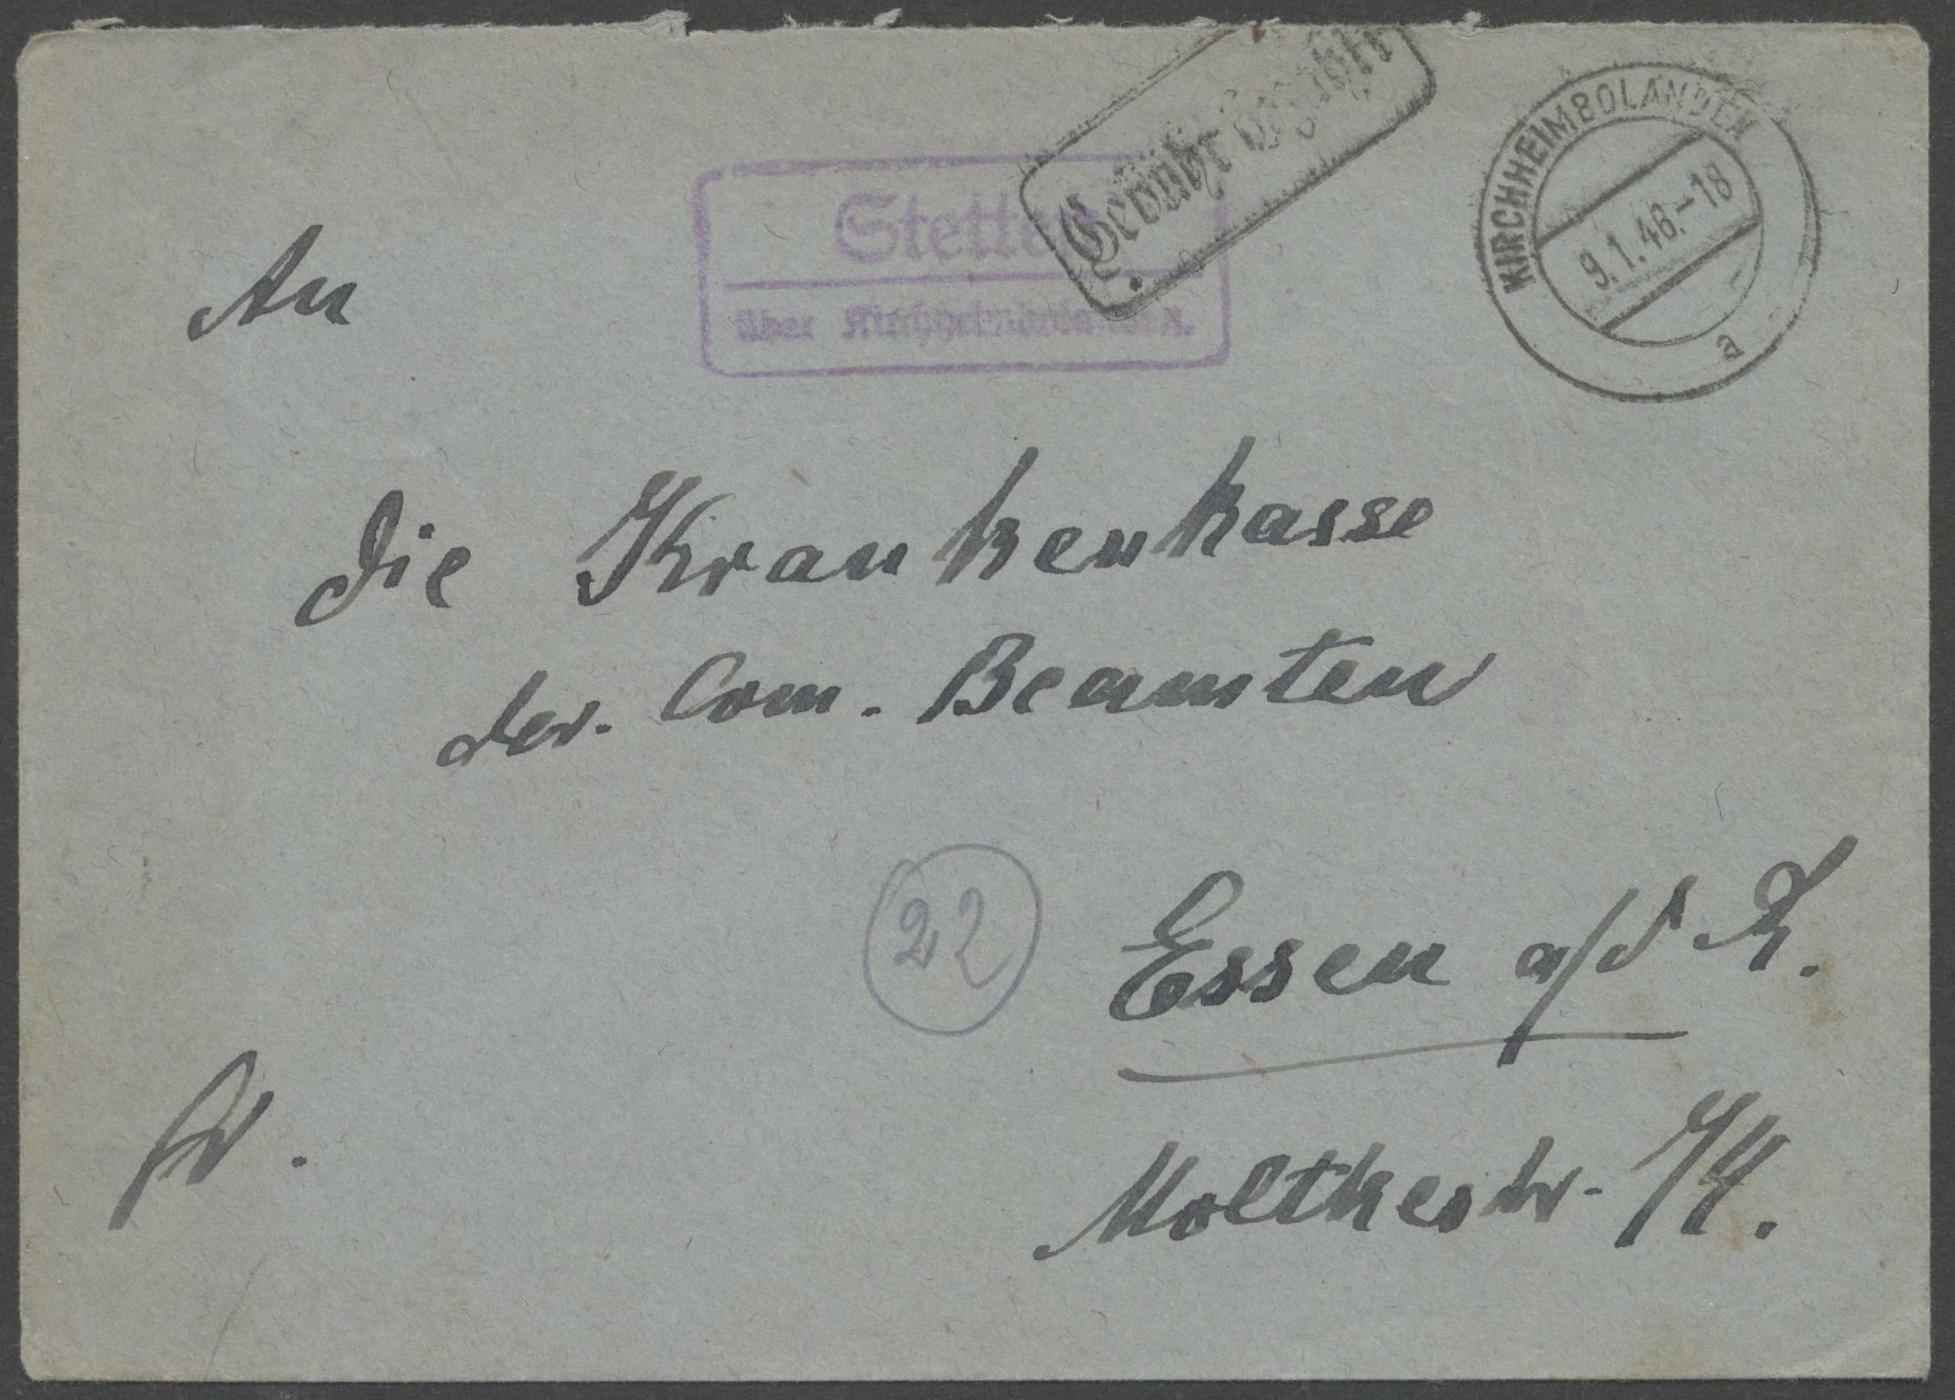 Stetten
über Kirchheimbolanden.
Gebühr bezahlt
KIRCHHEIMBOLANDEN
9.1.46.-18
a
An
die Krankenkasse
der. Com. Beamten
22
Essen a/d R.
Moltkestr.